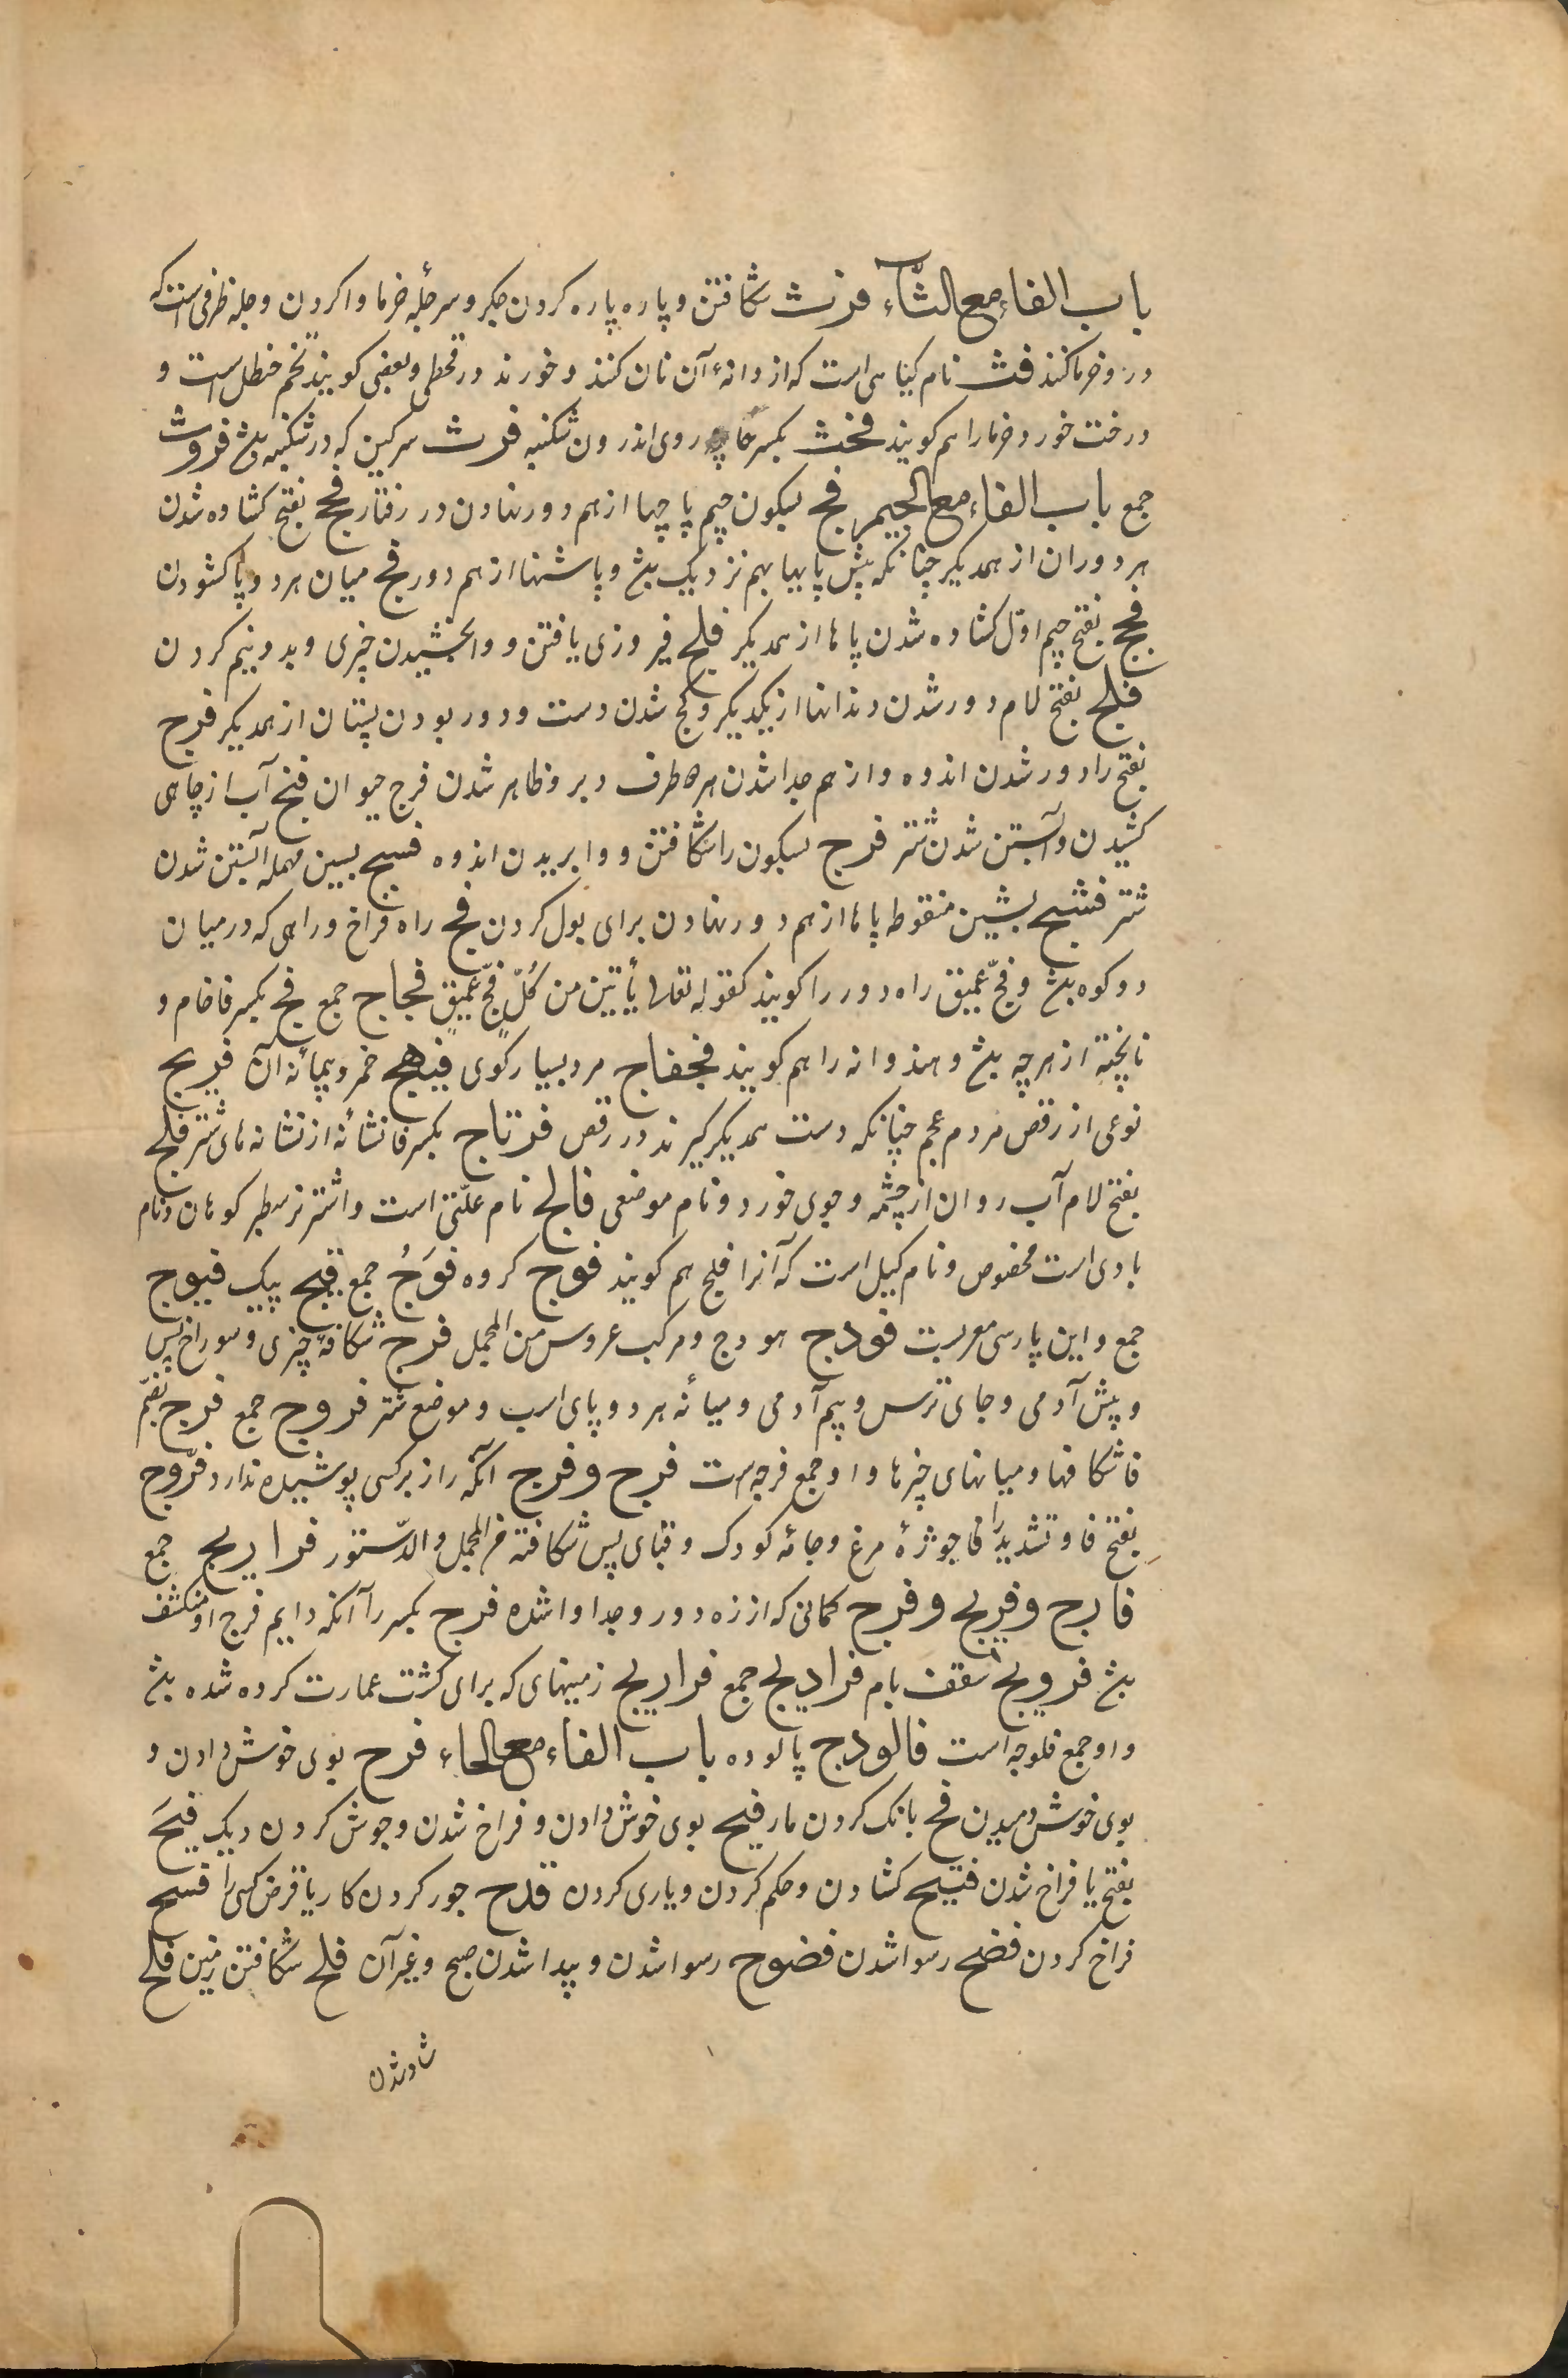 باب الفاء مع الثاء فرث شکافتن و پاره پاره کردن جکر و سر جلّه خرما وا کردن و جله ظرفی است که
درو خرما کنند فث نام کیاهی است که از دانهٔ آن نان کنند و خورند در قحطی و بعضی کویند تخم حنظل است و
درخت خورد خرما را هم کویند فحث بکسر حا روی اندرون شکنبه فرث سرکین که در شکنبه بشد فروث
جمع باب الفاء مع الجیم فج بسکون جیم پا چها از هم دور نهادن در رفتار فجج بفتح کشاده شدن
هر دو ران از همدیکر چنانکه پیش پایها بهم نزدیک بشد و پاشنها از هم دور فج میان هر دو پا کشودن
فجج بفتح جیم اوّل کشاده شدن پاها از همدیکر فلج فیروزی یافتن و وابخشیدن چیزی و بدو نیم کردن
فلج بفتح لام دور شدن دندانها از یکدیکر و کج شدن دست و دور بودن پستان از همدیکر فرج
بفتح را دور شدن اندوه و از هم جدا شدن هر ده طرف دبر و ظاهر شدن فرج حیوان فنج آب از چاهی
کشیدن و آبستن شدن شتر فرج بسکون را شکافتن و وابریدن اندوه فسج بسین مهمله آبستن شدن
شتر فشج بشین منقوطه پاها از هم دور نهادن برای بول کردن فج راه فراخ و راهی که در میان
دو کوه بشد و فجّ عمیق راه دور را کویند کقوله تعالی یأتین من کُلّ فجّ عمیقٍ فجاج جمع فج بکسر فا خام و
ناپخته از هر چه بشد و هندوانه را هم کویند فجفاج مرد بسیار کوی فیهج خمر و پیمانهٔ آن فریج
نوعی از رقص مردم عجم چنانکه دست همدیکر کیرند در رقص فرتاج بکسر فا نشانهٔ از نشانه های شتر فلج
بفتح لام آب روان از چشمه و جوی خورد و نام موضعی فالج نام علّتی است و اشتر نر سطبر کوهان و نام
بادی است مخصوص و نام کیل است که آنرا فلج هم کویند فوج کروه فَوَجُ جمع فیج پیک فیوج
جمع و این پارسی معربست فودج هودج و مرکب عروس من المجمل فرج شکافهٔ چیزی و سوراخ پس
و پیش آدمی و جای ترس و بیم آدمی و میانهٔ هر دو پای اسب و موضع شتر فروج جمع فرج بضم
فا شکافها و میانهای چیزها و او جمع فرجه است فرج و فرج آنکه راز بر کسی پوشیده ندارد فرّوج
بفتح فا و تشدید را فا جوژهٔ مرغ و جامهٔ کودک و قبای پس شکافته من المجمل و الدّستور فراریج جمع
فارج و فریج و فرج کمانی که از زه دور و جدا وا شده فرج بکسر را آنکه دایم فرج او منکشف
بشد فرویج سقف بام فرادیج جمع فراریج زمینهای که برای کشت عمارت کرده شده بشد
و او جمع فلوجه است فالودج پالوده باب الفاء مع الحاء فرح بوی خوش دادن و
بوی خوش دمیدن فح بانک کردن مار فیح بوی خوش دادن و فراخ شدن و جوش کردن دیک فیَح
بفتح یا فراخ شدن فتح کشادن و حکم کردن و یاری کردن فدح جور کردن کار یا قرض کسی را فسح
فراخ کردن فضح رسوا شدن فضوح رسوا شدن و پیدا شدن صبح و غیر آن فلح شکافتن زمین فلح
شاد شدن